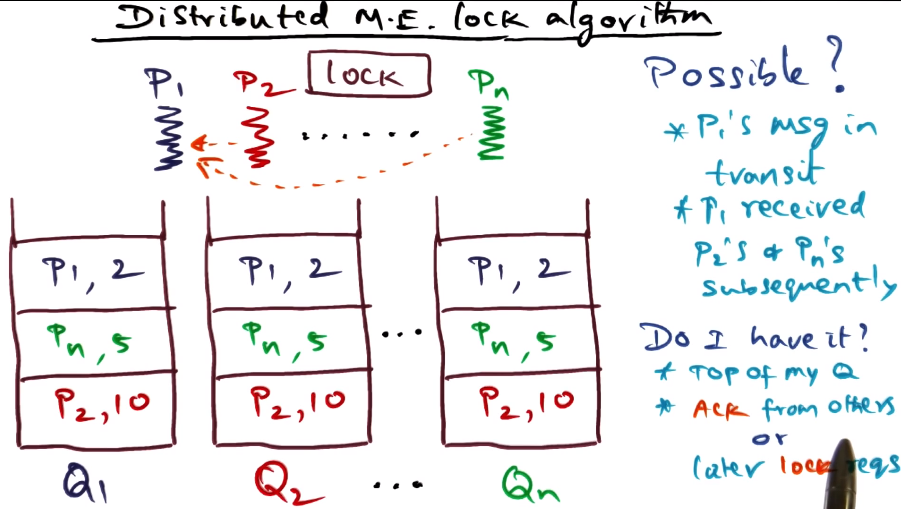 Distributed M.E. lock algorithm
P1 P2 lock ...... Pn
P1, 2
Pn, 5
P2, 10
Q1
P1, 2
Pn, 5
P2, 10
Q2
...
...
P1, 2
Pn, 5
P2, 10
Qn
Possible?
* P1's msg in
transit
* P1 received
P2's & Pn's
subsequently
Do I have it?
* Top of my Q
* ACK from others
or
later lock reqs